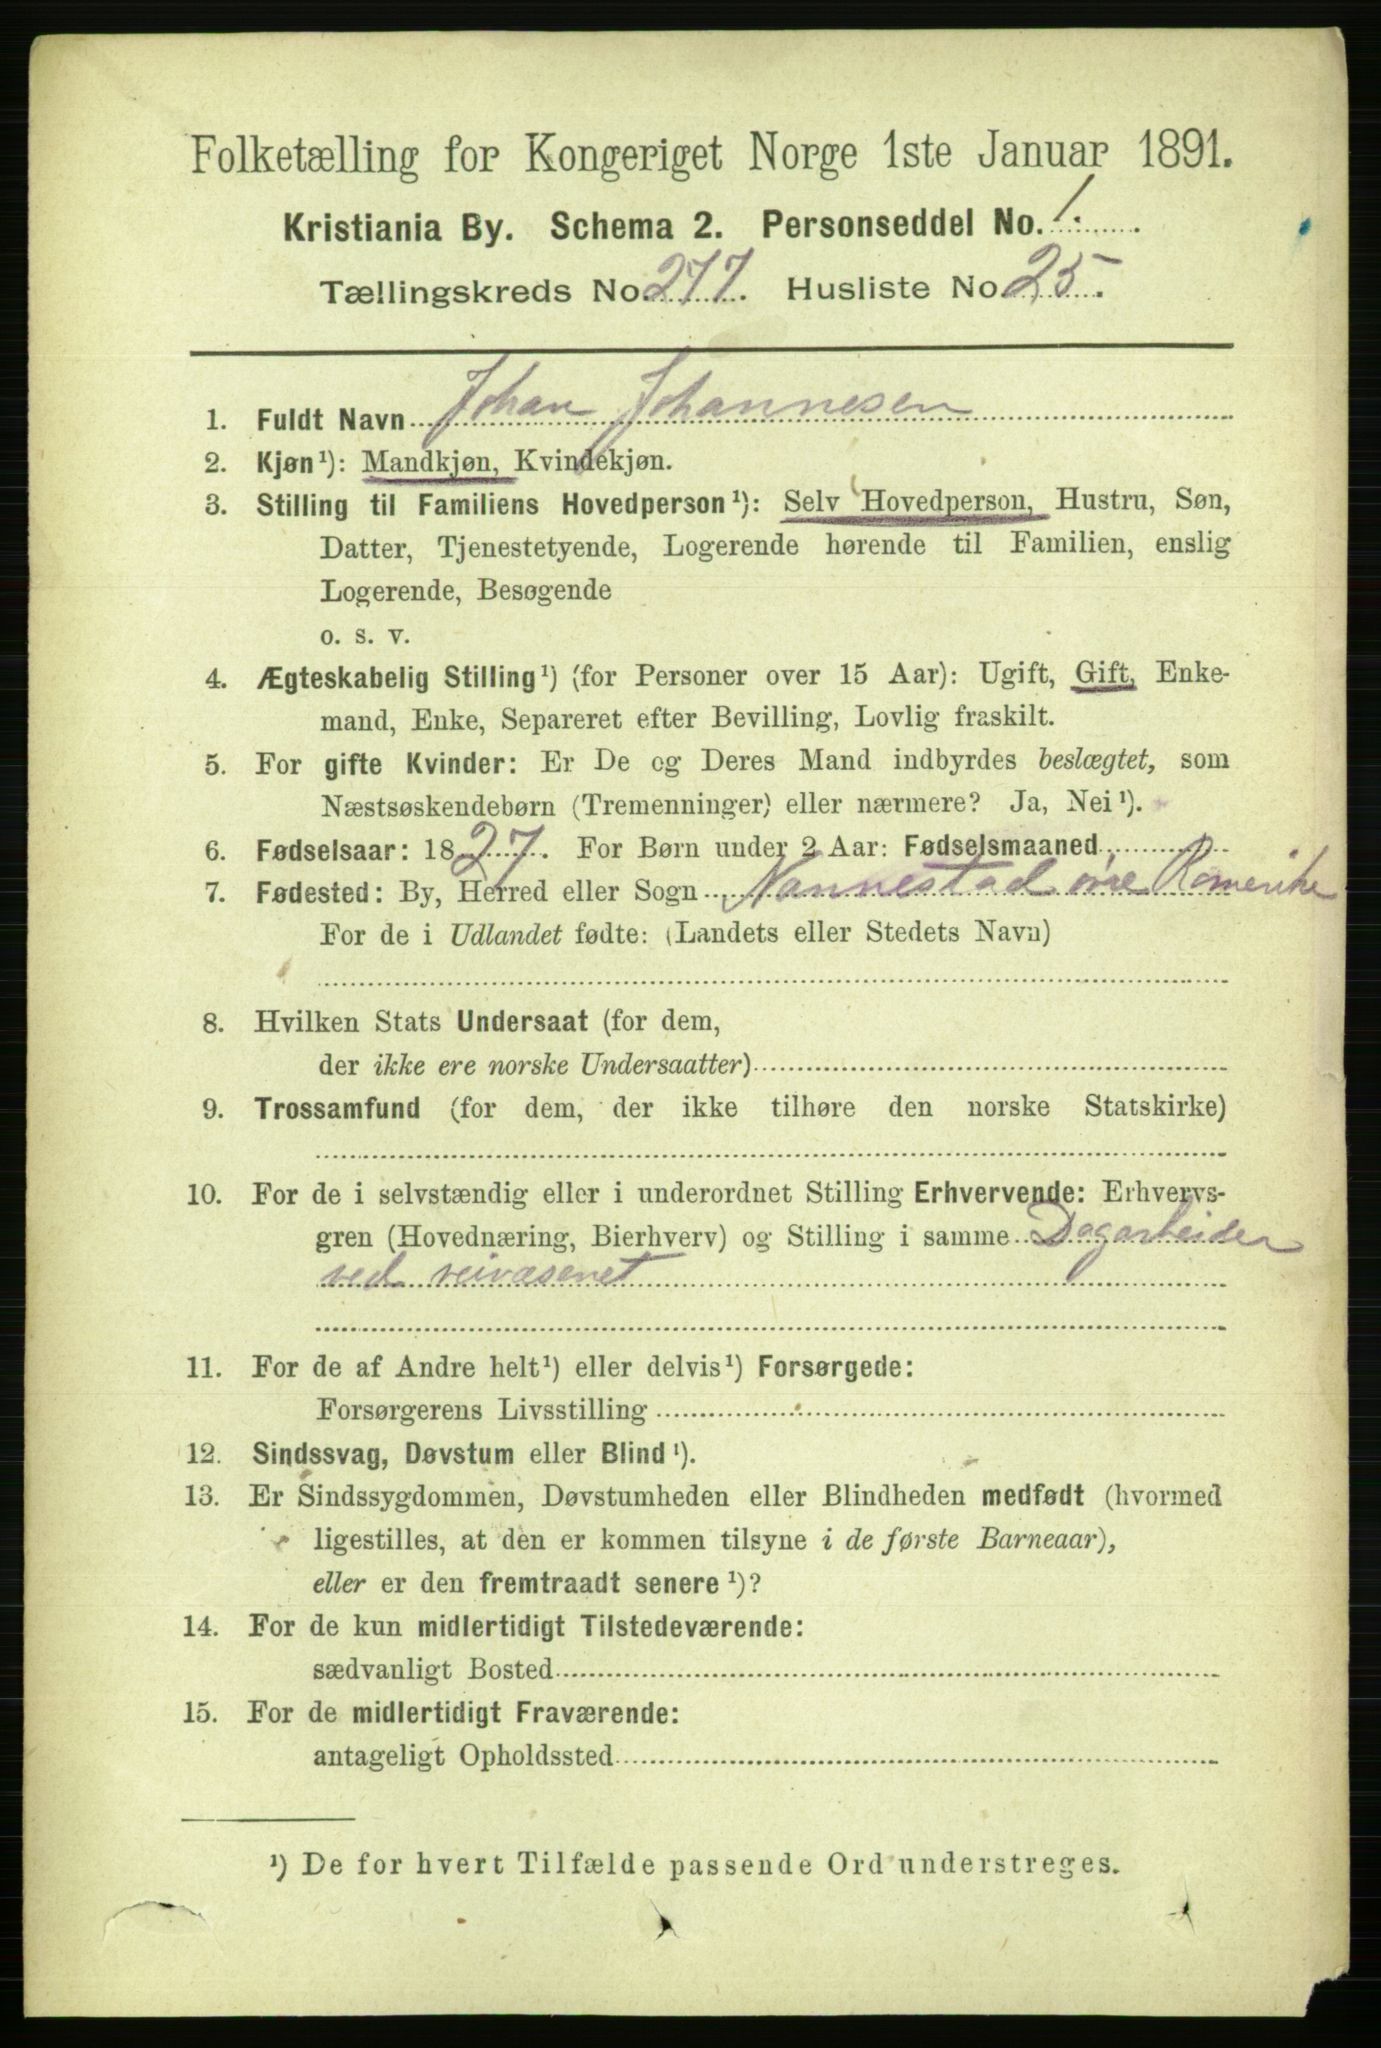 Folketælling for Kongeriget Norge 1ste Januar 1891.
Kristiania By. Schema 2. Personseddel No. 1.
Tællingskreds No. 277. Husliste No. 25.
1. Fuldt Navn Johan Johannesen
2. Kjøn¹): Mandkjøn, Kvindekjøn.
3. Stilling til Familiens Hovedperson¹): Selv Hovedperson, Hustru, Søn,
Datter, Tjenestetyende, Logerende hørende til Familien, enslig
Logerende, Besøgende
o. s. v.
4. Ægteskabelig Stilling¹) (for Personer over 15 Aar): Ugift, Gift, Enke-
mand, Enke, Separeret efter Bevilling, Lovlig fraskilt.
5. For gifte Kvinder: Er De og Deres Mand indbyrdes beslægtet, som
Næstsøskendebørn (Tremenninger) eller nærmere? Ja, Nei¹).
6. Fødselsaar: 1827. For Børn under 2 Aar: Fødselsmaaned
7. Fødested: By, Herred eller Sogn Nannestad øvre Romerike
For de i Udlandet fødte: (Landets eller Stedets Navn)
8. Hvilken Stats Undersaat (for dem,
der ikke ere norske Undersaatter)
9. Trossamfund (for dem, der ikke tilhøre den norske Statskirke)
10. For de i selvstændig eller i underordnet Stilling Erhvervende: Erhvervs-
gren (Hovednæring, Bierhverv) og Stilling i samme Dagarbeider
ved veivæsenet
11. For de af Andre helt¹) eller delvis¹) Forsørgede:
Forsørgerens Livsstilling
12. Sindssvag, Døvstum eller Blind¹).
13. Er Sindssygdommen, Døvstumheden eller Blindheden medfødt (hvormed
ligestilles, at den er kommen tilsyne i de første Barneaar),
eller er den fremtraadt senere¹)?
14. For de kun midlertidigt Tilstedeværende:
sædvanligt Bosted
15. For de midlertidigt Fraværende:
antageligt Opholdssted
¹) De for hvert Tilfælde passende Ord understreges.